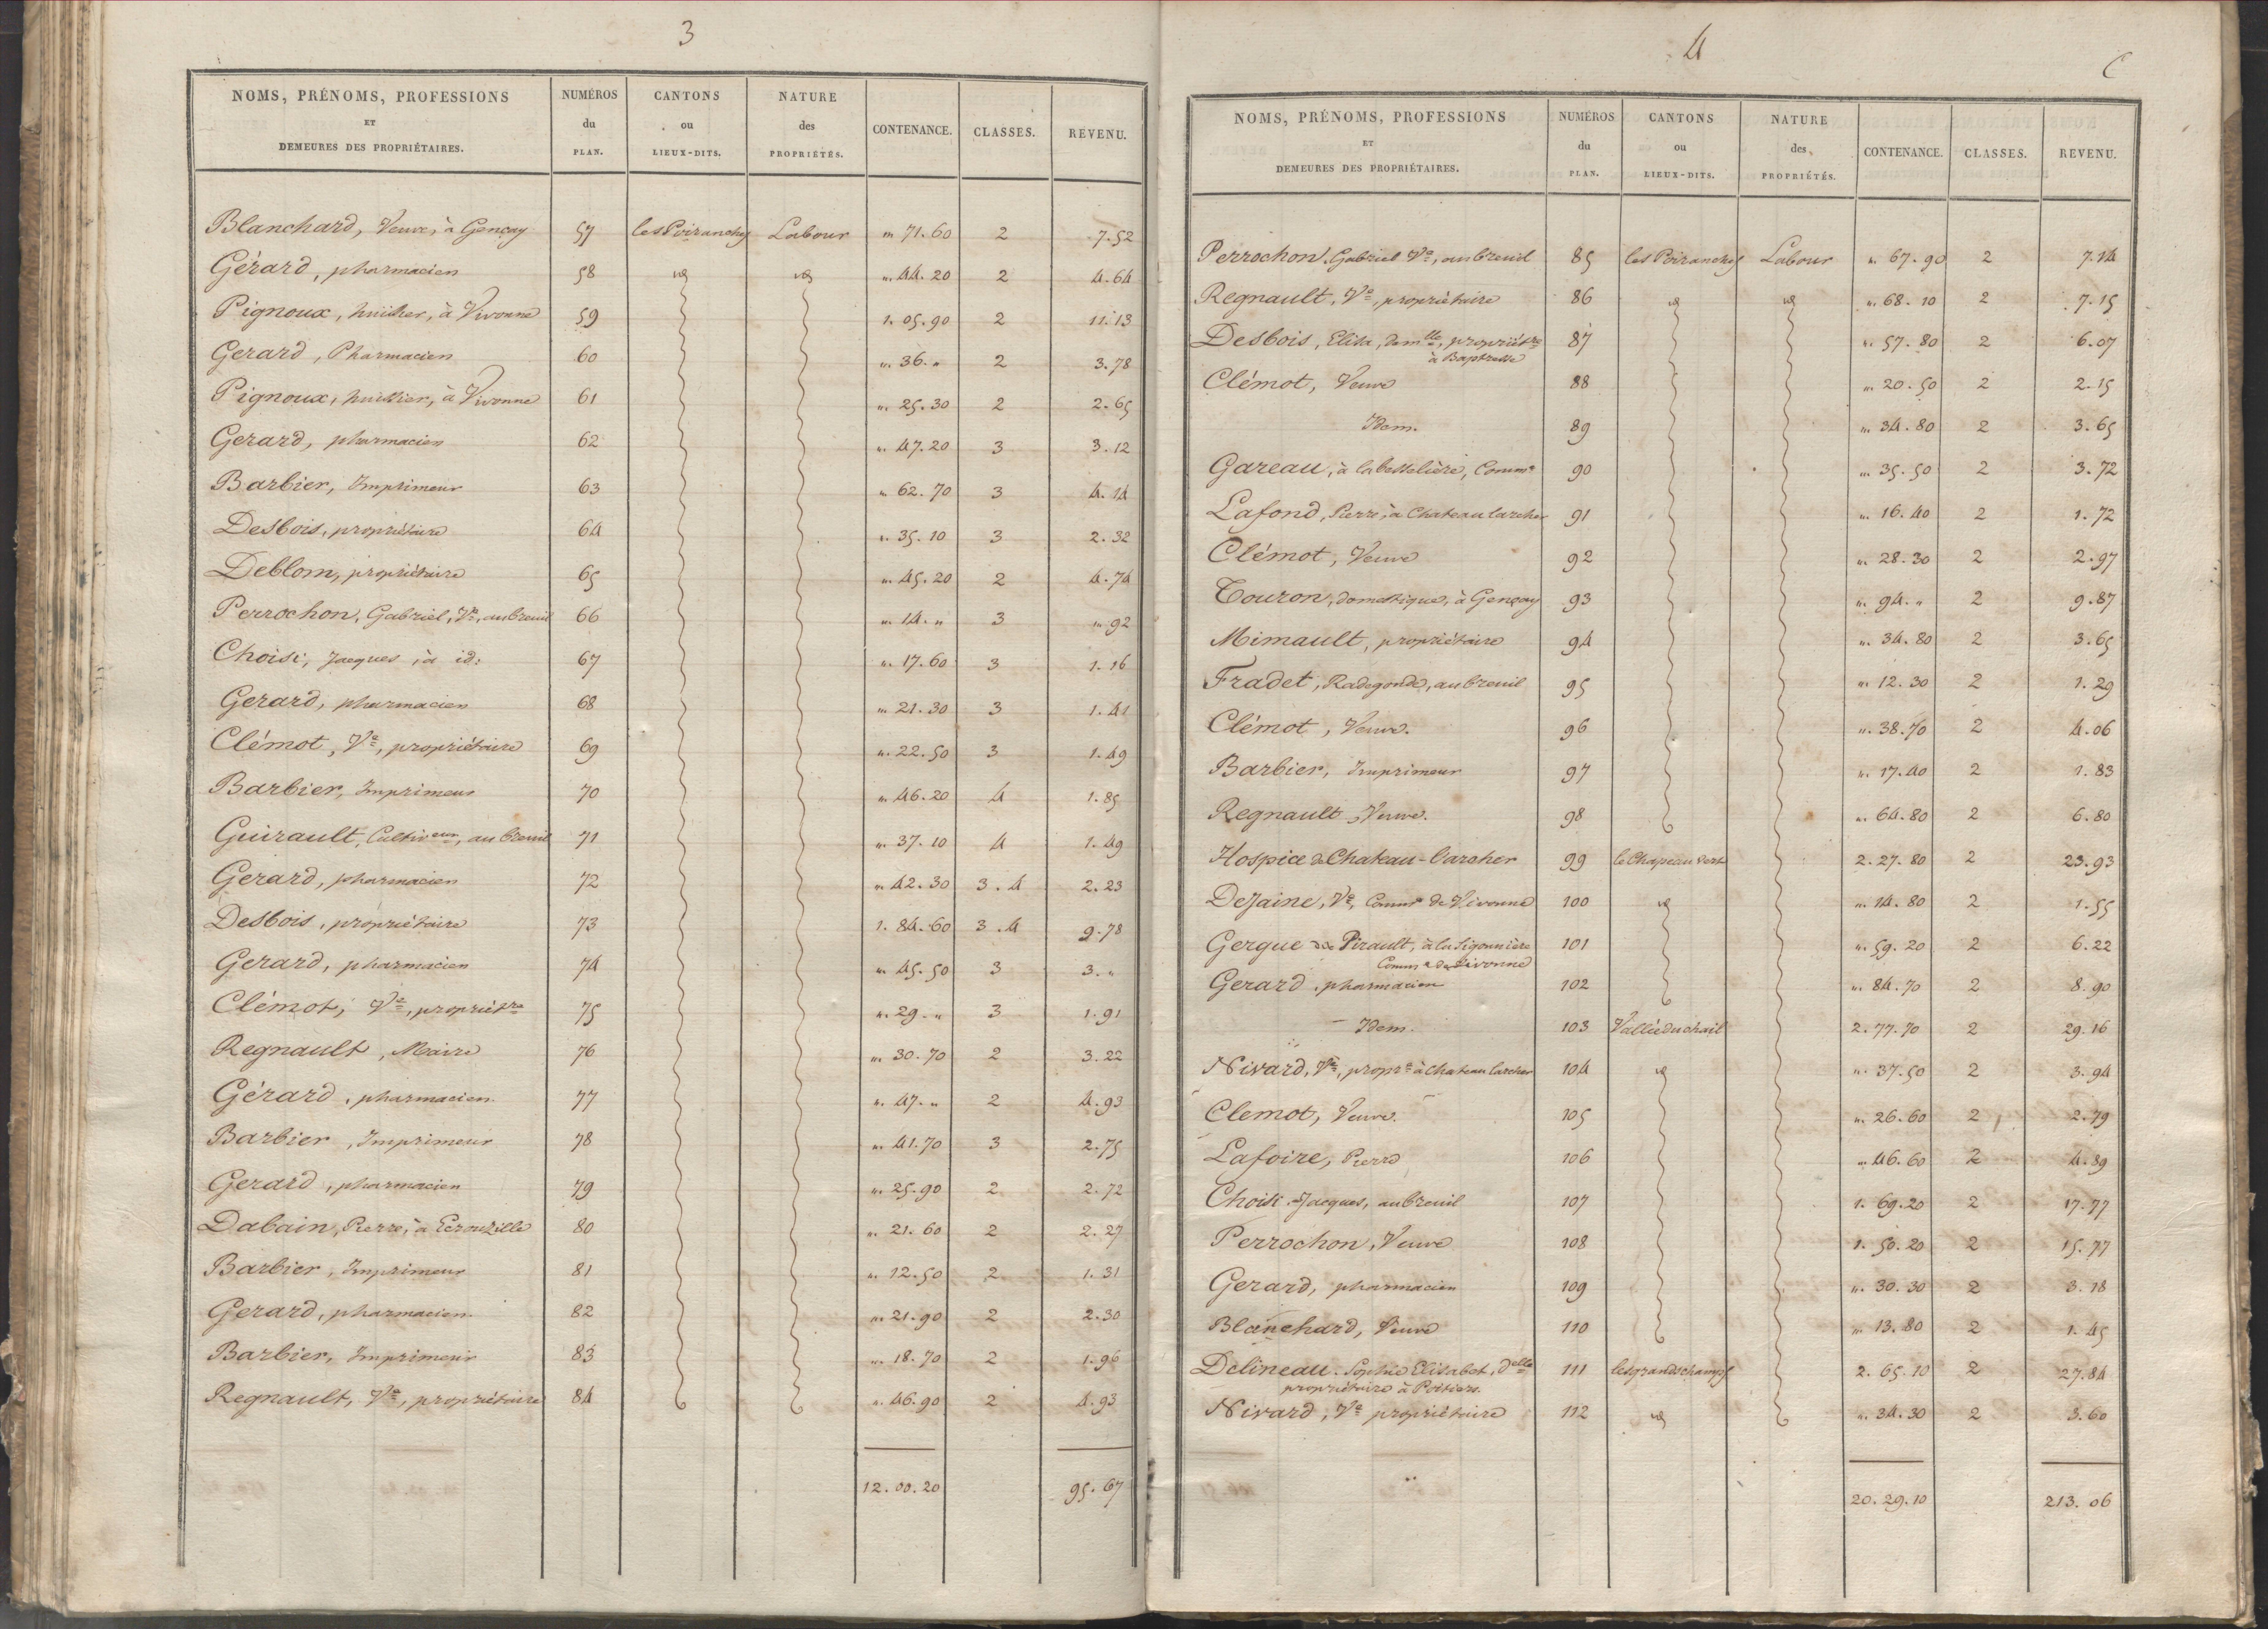 3
NOMS, PRÉNOMS, PROFESSIONS ET DEMEURES DES PROPRIÉTAIRES. NUMÉROS du PLAN. CANTONS ou LIEUX-DITS. NATURE des PROPRIÉTÉS. CONTENANCE. CLASSES. REVENU.
Blanchard, Veuve, à Gençay 57 les Poiranches Labour " 71.60 2 7.52
Gérard, pharmacien 58 id id " 44.20 2 4.64
Pignoux, huissier, à Vivonne 59 1.05.90 2 11.13
Gerard, Pharmacien 60 " 36. " 2 3.78
Pignoux, huissier, à Vivonne 61 " 25.30 2 2.65
Gerard, pharmacien 62 " 47.20 3 3.12
Barbier, Imprimeur 63 " 62.70 3 4.14
Desbois, propriétaire 64 " 35.10 3 2.32
Deblom, propriétaire 65 " 45.20 2 4.74
Perrochon, Gabriel, Ve, au breuil 66 " 14. " 3 " 92
Choisi, Jacques, à id: 67 " 17.60 3 1.16
Gerard, pharmacien 68 " 21.30 3 1.41
Clémot, Ve, propriétaire 69 " 22.50 3 1.49
Barbier, Imprimeur 70 " 46.20 4 1.85
Guirault, Cultiveur, au breuil 71 " 37.10 4 1.49
Gerard, pharmacien 72 " 42.30 3.4 2.23
Desbois, propriétaire 73 1.84.60 3.4 9.78
Gerard, pharmacien 74 " 45.50 3 3. "
Clémot, Ve, propriétre 75 " 29. " 3 1.91
Regnault, Maire 76 " 30.70 2 3.22
Gérard, pharmacien 77 " 47. " 2 4.93
Barbier, Imprimeur 78 " 41.70 3 2.75
Gerard, pharmacien 79 " 25.90 2 2.72
Dabain, Pierre, à Ecrouzille 80 " 21.60 2 2.27
Barbier, Imprimeur 81 " 12.50 2 1.31
Gerard, pharmacien. 82 " 21.90 2 2.30
Barbier, Imprimeur 83 " 18.70 2 1.96
Regnault, Ve, propriétaire 84 " 46.90 2 4.93
12.00.20 95.67
4
C
NOMS, PRÉNOMS, PROFESSIONS ET DEMEURES DES PROPRIÉTAIRES. NUMÉROS du PLAN. CANTONS ou LIEUX-DITS. NATURE des PROPRIÉTÉS. CONTENANCE. CLASSES. REVENU.
Perrochon, Gabriel Ve, au breuil 85 les Poiranches Labour " 67.90 2 7.14
Regnault, Ve, propriétaire 86 id id " 68.10 2 7.15
Desbois, Elisa, damlle, propriétre 87 " 57.80 2 6.07
à Baptresse
Clémot, Veuve 88 " 20.50 2 2.15
Idem. 89 " 34.80 2 3.65
Gareau, à la besselière, Comme 90 " 35.50 2 3.72
Lafond, Pierre, à Chateau larcher 91 " 16.40 2 1.72
Clémot, Veuve 92 " 28.30 2 2.97
Touron, domestique, à Gençay 93 " 94. " 2 9.87
Mimault, propriétaire 94 " 34.80 2 3.65
Fradet, Radegonde, au breuil 95 " 12.30 2 1.29
Clémot, Veuve. 96 " 38.70 2 4.06
Barbier, Imprimeur 97 " 17.40 2 1.83
Regnault, Veuve. 98 " 64.80 2 6.80
Hospice de Chateau-larcher 99 le Chapeau vert 2.27.80 2 23.93
Dejaine, Ve, Comme de Vivonne 100 id " 14.80 2 1.55
Gergue Pirault, à la Sigonnière 101 " 59.20 2 6.22
Comme de Vivonne
Gerard, pharmacien 102 " 84.70 2 8.90
Idem. 103 Vallée du chail 2.77.70 2 29.16
Nivard, Ve, propre à Chateau larcher 104 id " 37.50 2 3.94
Clemot, Veuve. 105 " 26.60 2 2.79
Lafoire, Pierre 106 " 46.60 2 4.89
Choisi Jacques, au breuil 107 1.69.20 2 17.77
Perrochon, Veuve 108 1.50.20 2 15.77
Gerard, pharmacien 109 " 30.30 2 3.18
Blanchard, Veuve 110 " 13.80 2 1.45
Delineau Sophie Elisabet, delle 111 les grands champs 2.65.10 2 27.84
propriétaire à Poitiers.
Nivard, Ve propriétaire 112 id " 34.30 2 3.60
20.29.10 213.06